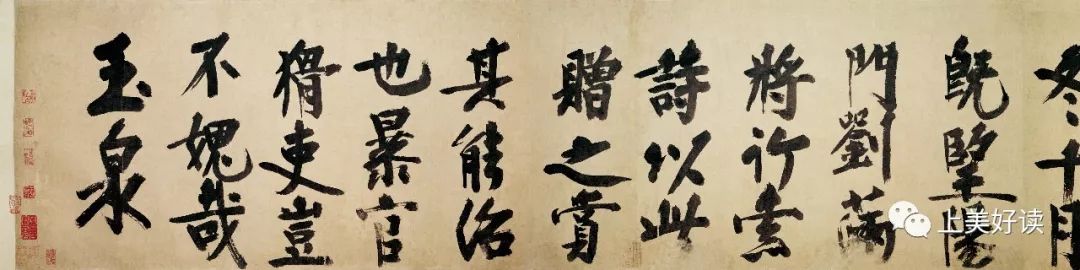 冬十月
既望陽
門劉滿
將行索
詩以此
贈之賞
其能治
也暴官
猾吏豈
不媿哉
玉泉
上美好读